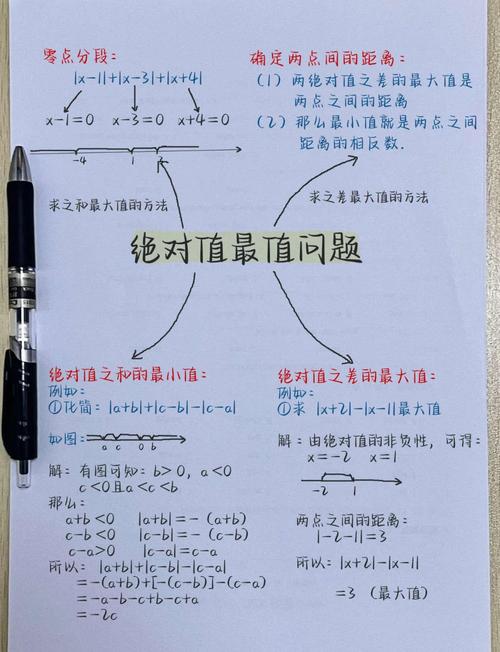 零点分段:
|x-1|+|x-3|+|x+4|
x-1=0 x-3=0 x+4=0
-4 1 2
求之和最大值的方法
确定两点间的距离:
(1) 两绝对值之差的最大值是
两点之间的距离
(2) 那么最小值就是两点之间
距离的相反数.
求之差最大值的方法
绝对值最值问题
绝对值之和的最小值:
例如:
①化简: |a+b|+|c-b|-|c-a|
如图:
a c 0 b
解: 有图可知: b>0, a<0
c<0且a<c<b
那么:
a+b<0 |a+b|=-(a+b)
c-b<0 |c-b|=-(c-b)
c-a>0 |c-a|=c-a
所以: |a+b|+|c-b|-|c-a|
=-(a+b)+[-(c-b)]-(c-a)
=-a-b-c+b-c+a
=-2c
绝对值之差的最大值:
例如:
①求 |x+2|-|x-1|最大值
解: 由绝对值的非负性, 可得:
x=-2 x=1
-2 1
两点之间的距离:
|-2-1|=3
所以: |x+2|-|x-1|
=3 (最大值)